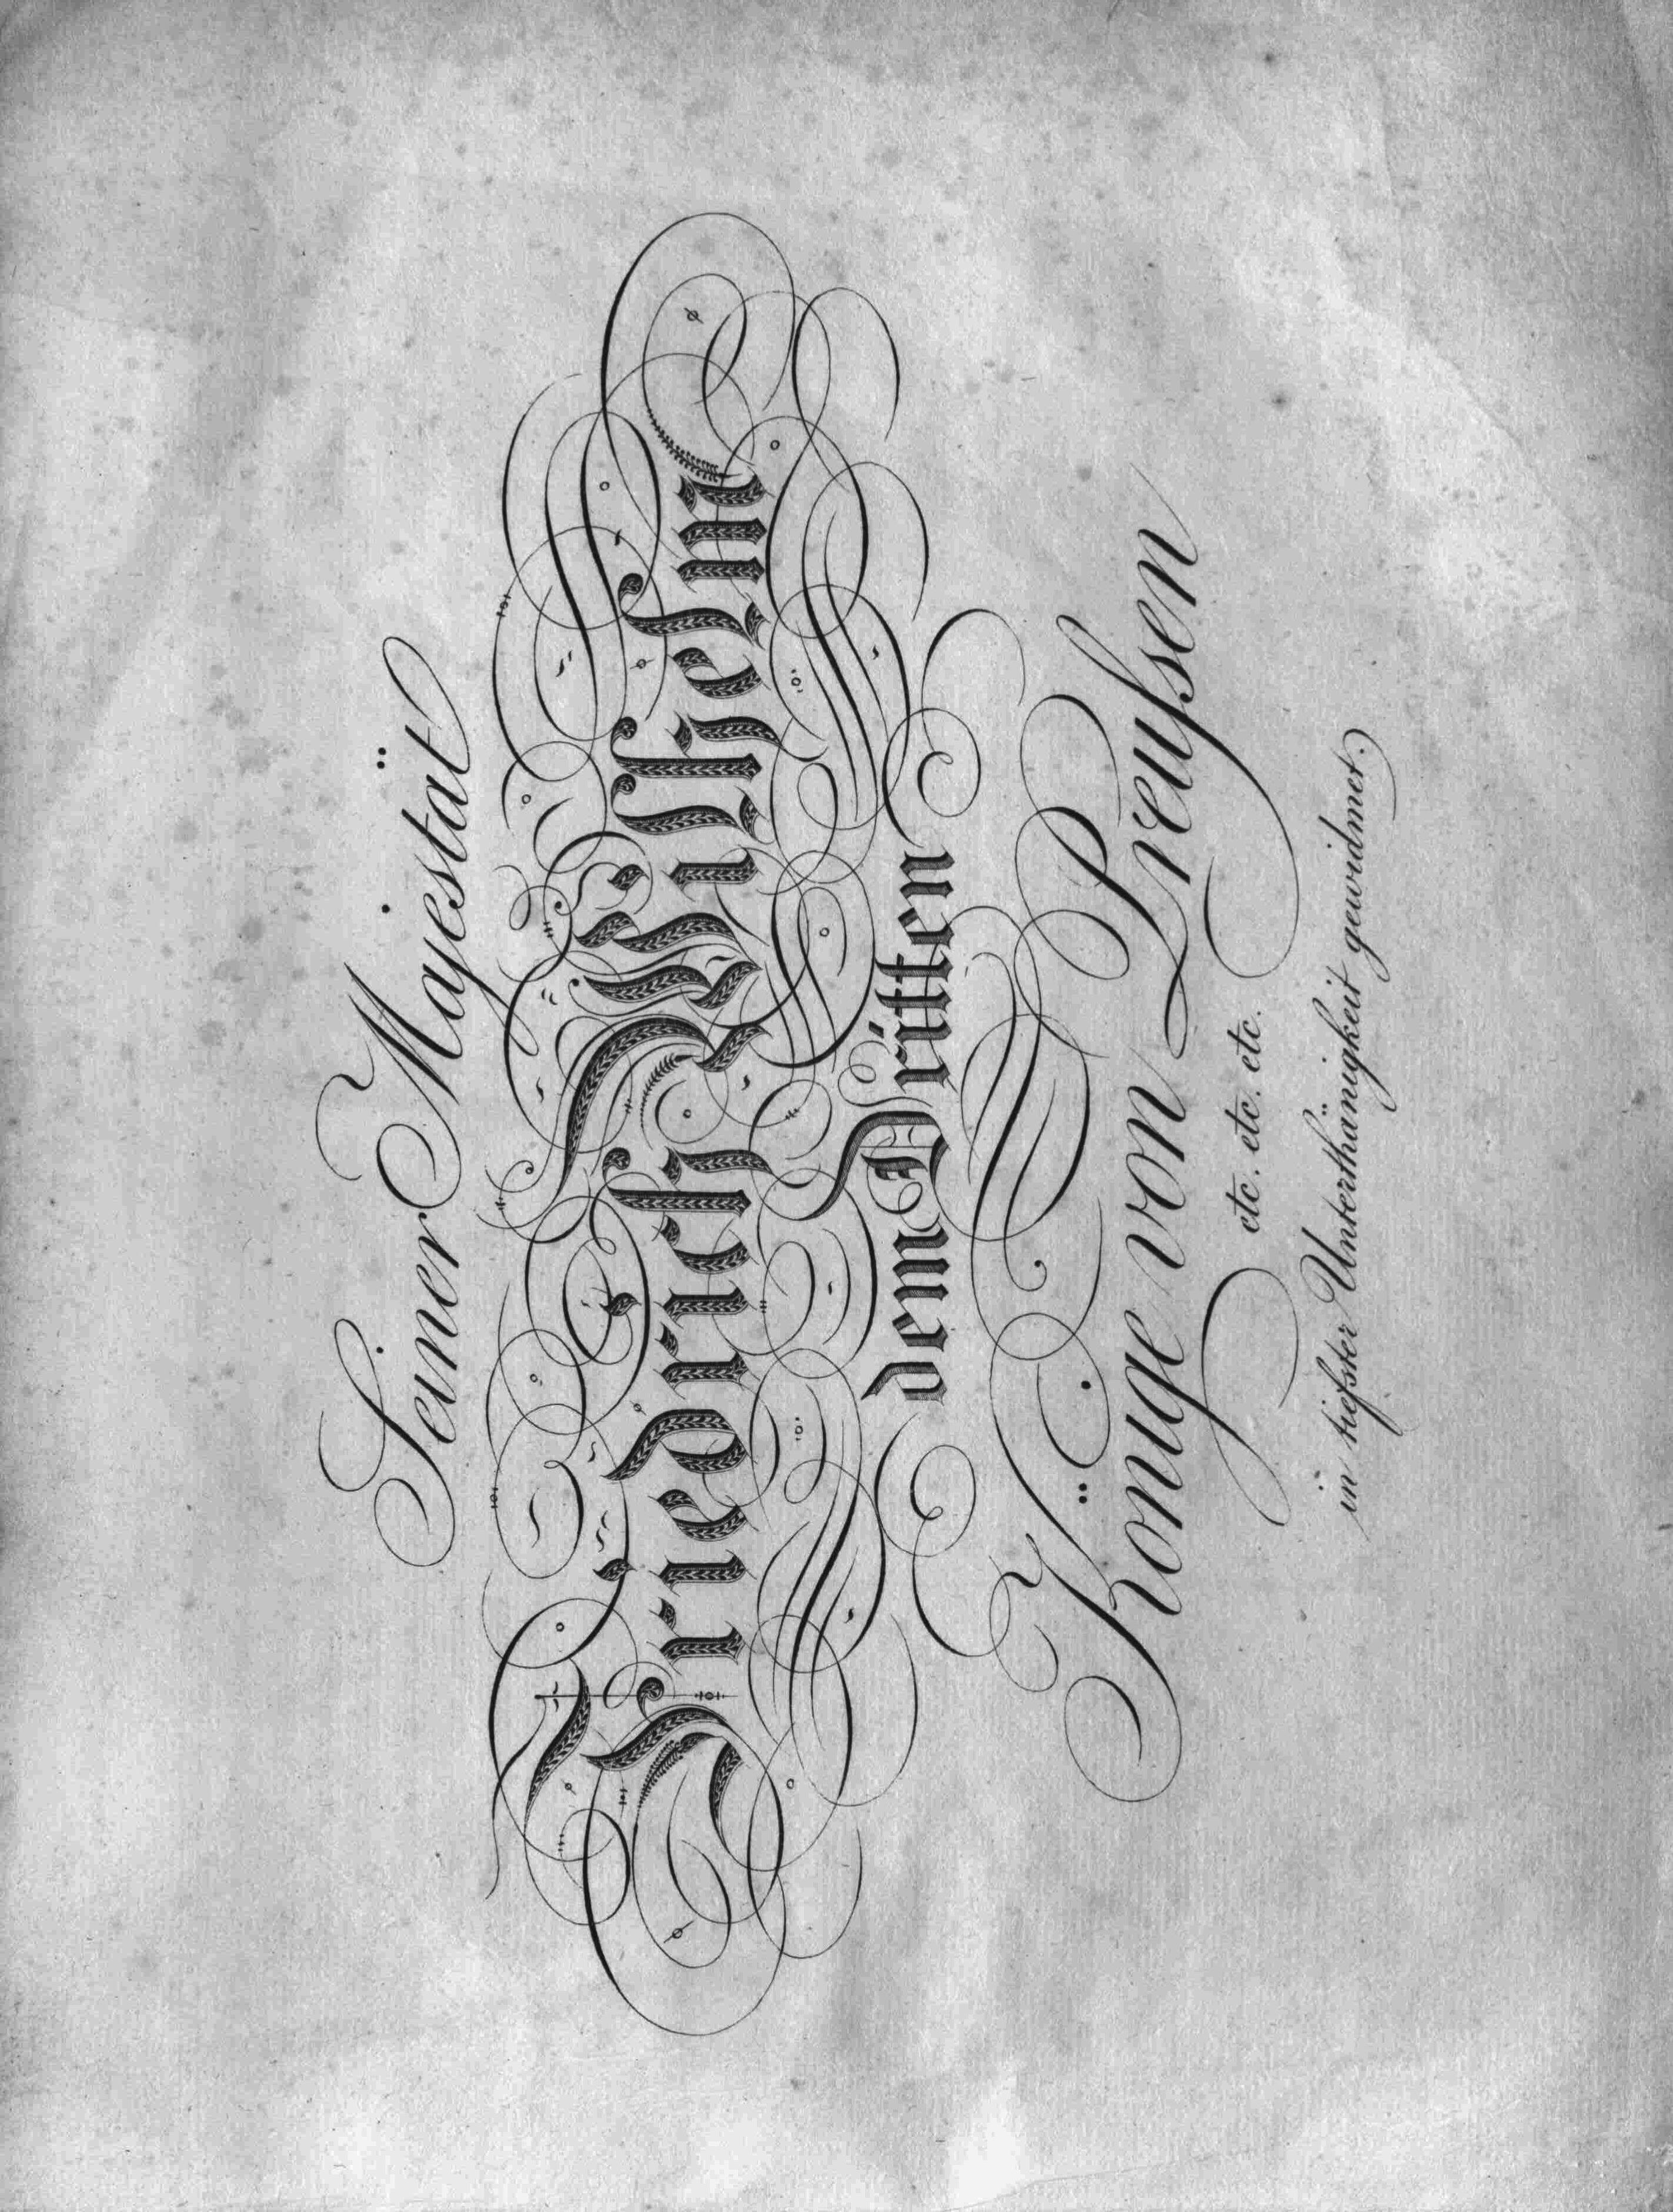 Seiner Majestät
Friedrich Wilhelm
dem Dritten
Könige von Preuſsen
etc. etc. etc.
in tiefster Unterthänigkeit gewidmet.